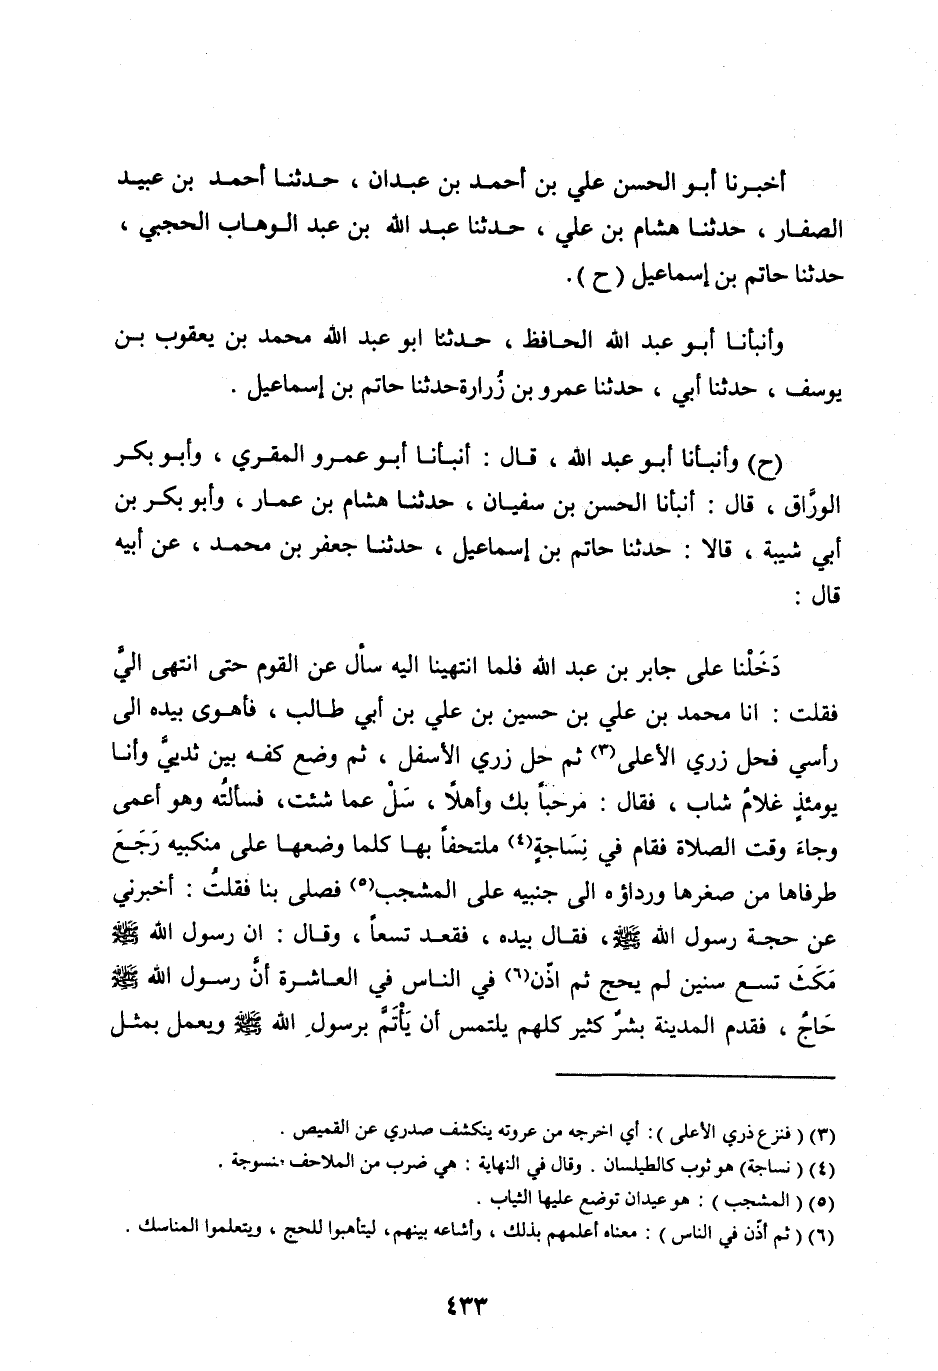 أخبرنا أبو الحسن علي بن أحمد بن عبدان ، حدثنا أحمد بن عبيد
الصفار ، حدثنا هشام بن علي ، حدثنا عبد الله بن عبد الوهاب الحجبي ،
حدثنا حاتم بن إسماعيل (ح).
وأنبأنا أبو عبد الله الحافظ ، حدثنا ابو عبد الله محمد بن يعقوب بن
يوسف ، حدثنا أبي ، حدثنا عمرو بن زُرارةحدثنا حاتم بن إسماعيل .
(ح) وأنبأنا أبو عبد الله ، قال : أنبأنا أبو عمرو المقري ، وأبو بكر
الورَّاق ، قال : أنبأنا الحسن بن سفيان ، حدثنا هشام بن عمار ، وأبو بكر بن
أبي شيبة ، قالا : حدثنا حاتم بن إسماعيل ، حدثنا جعفر بن محمد ، عن أبيه
قال :
دَخَلْنا على جابر بن عبد الله فلما انتهينا اليه سأل عن القوم حتى انتهى اليَّ
فقلت : انا محمد بن علي بن حسين بن علي بن أبي طالب ، فأهوى بيده الى
رأسي فحل زري الأعلى(٣) ثم حل زري الأسفل ، ثم وضع كفه بين ثدييَّ وأنا
يومئذٍ غلامٌ شاب ، فقال : مرحباً بك وأهلاً ، سَلْ عما شئت، فسألتُه وهو أعمى
وجاءَ وقت الصلاة فقام في نِسَاجةٍ(٤) ملتحفاً بها كلما وضعها على منكبيه رَجَعَ
طرفاها من صغرها ورداؤه الى جنبيه على المشجب(٥) فصلى بنا فقلتُ : أخبرني
عن حجة رسول الله ﷺ، فقال بيده ، فقعد تسعاً ، وقال : ان رسول الله ﷺ
مَكَثَ تسع سنين لم يحج ثم اذّن(٦) في الناس في العاشرة أنَّ رسول الله ﷺ
حَاجٌ ، فقدم المدينة بشرٌ كثير كلهم يلتمس أن يَأْتَمَّ برسولِ الله ﷺ ويعمل بمثل
(٣) ( فنزع ذري الأعلى ): أي اخرجه من عروته ينكشف صدري عن القميص .
(٤) ( نساجة) هو ثوب كالطيلسان . وقال في النهاية : هي ضرب من الملاحف منسوجة .
(٥) ( المشجب ) : هو عيدان توضع عليها الثياب .
(٦) ( ثم أذّن في الناس ) : معناه أعلمهم بذلك ، وأشاعه بينهم، ليتأهبوا للحج ، ويتعلموا المناسك .
٤٣٣